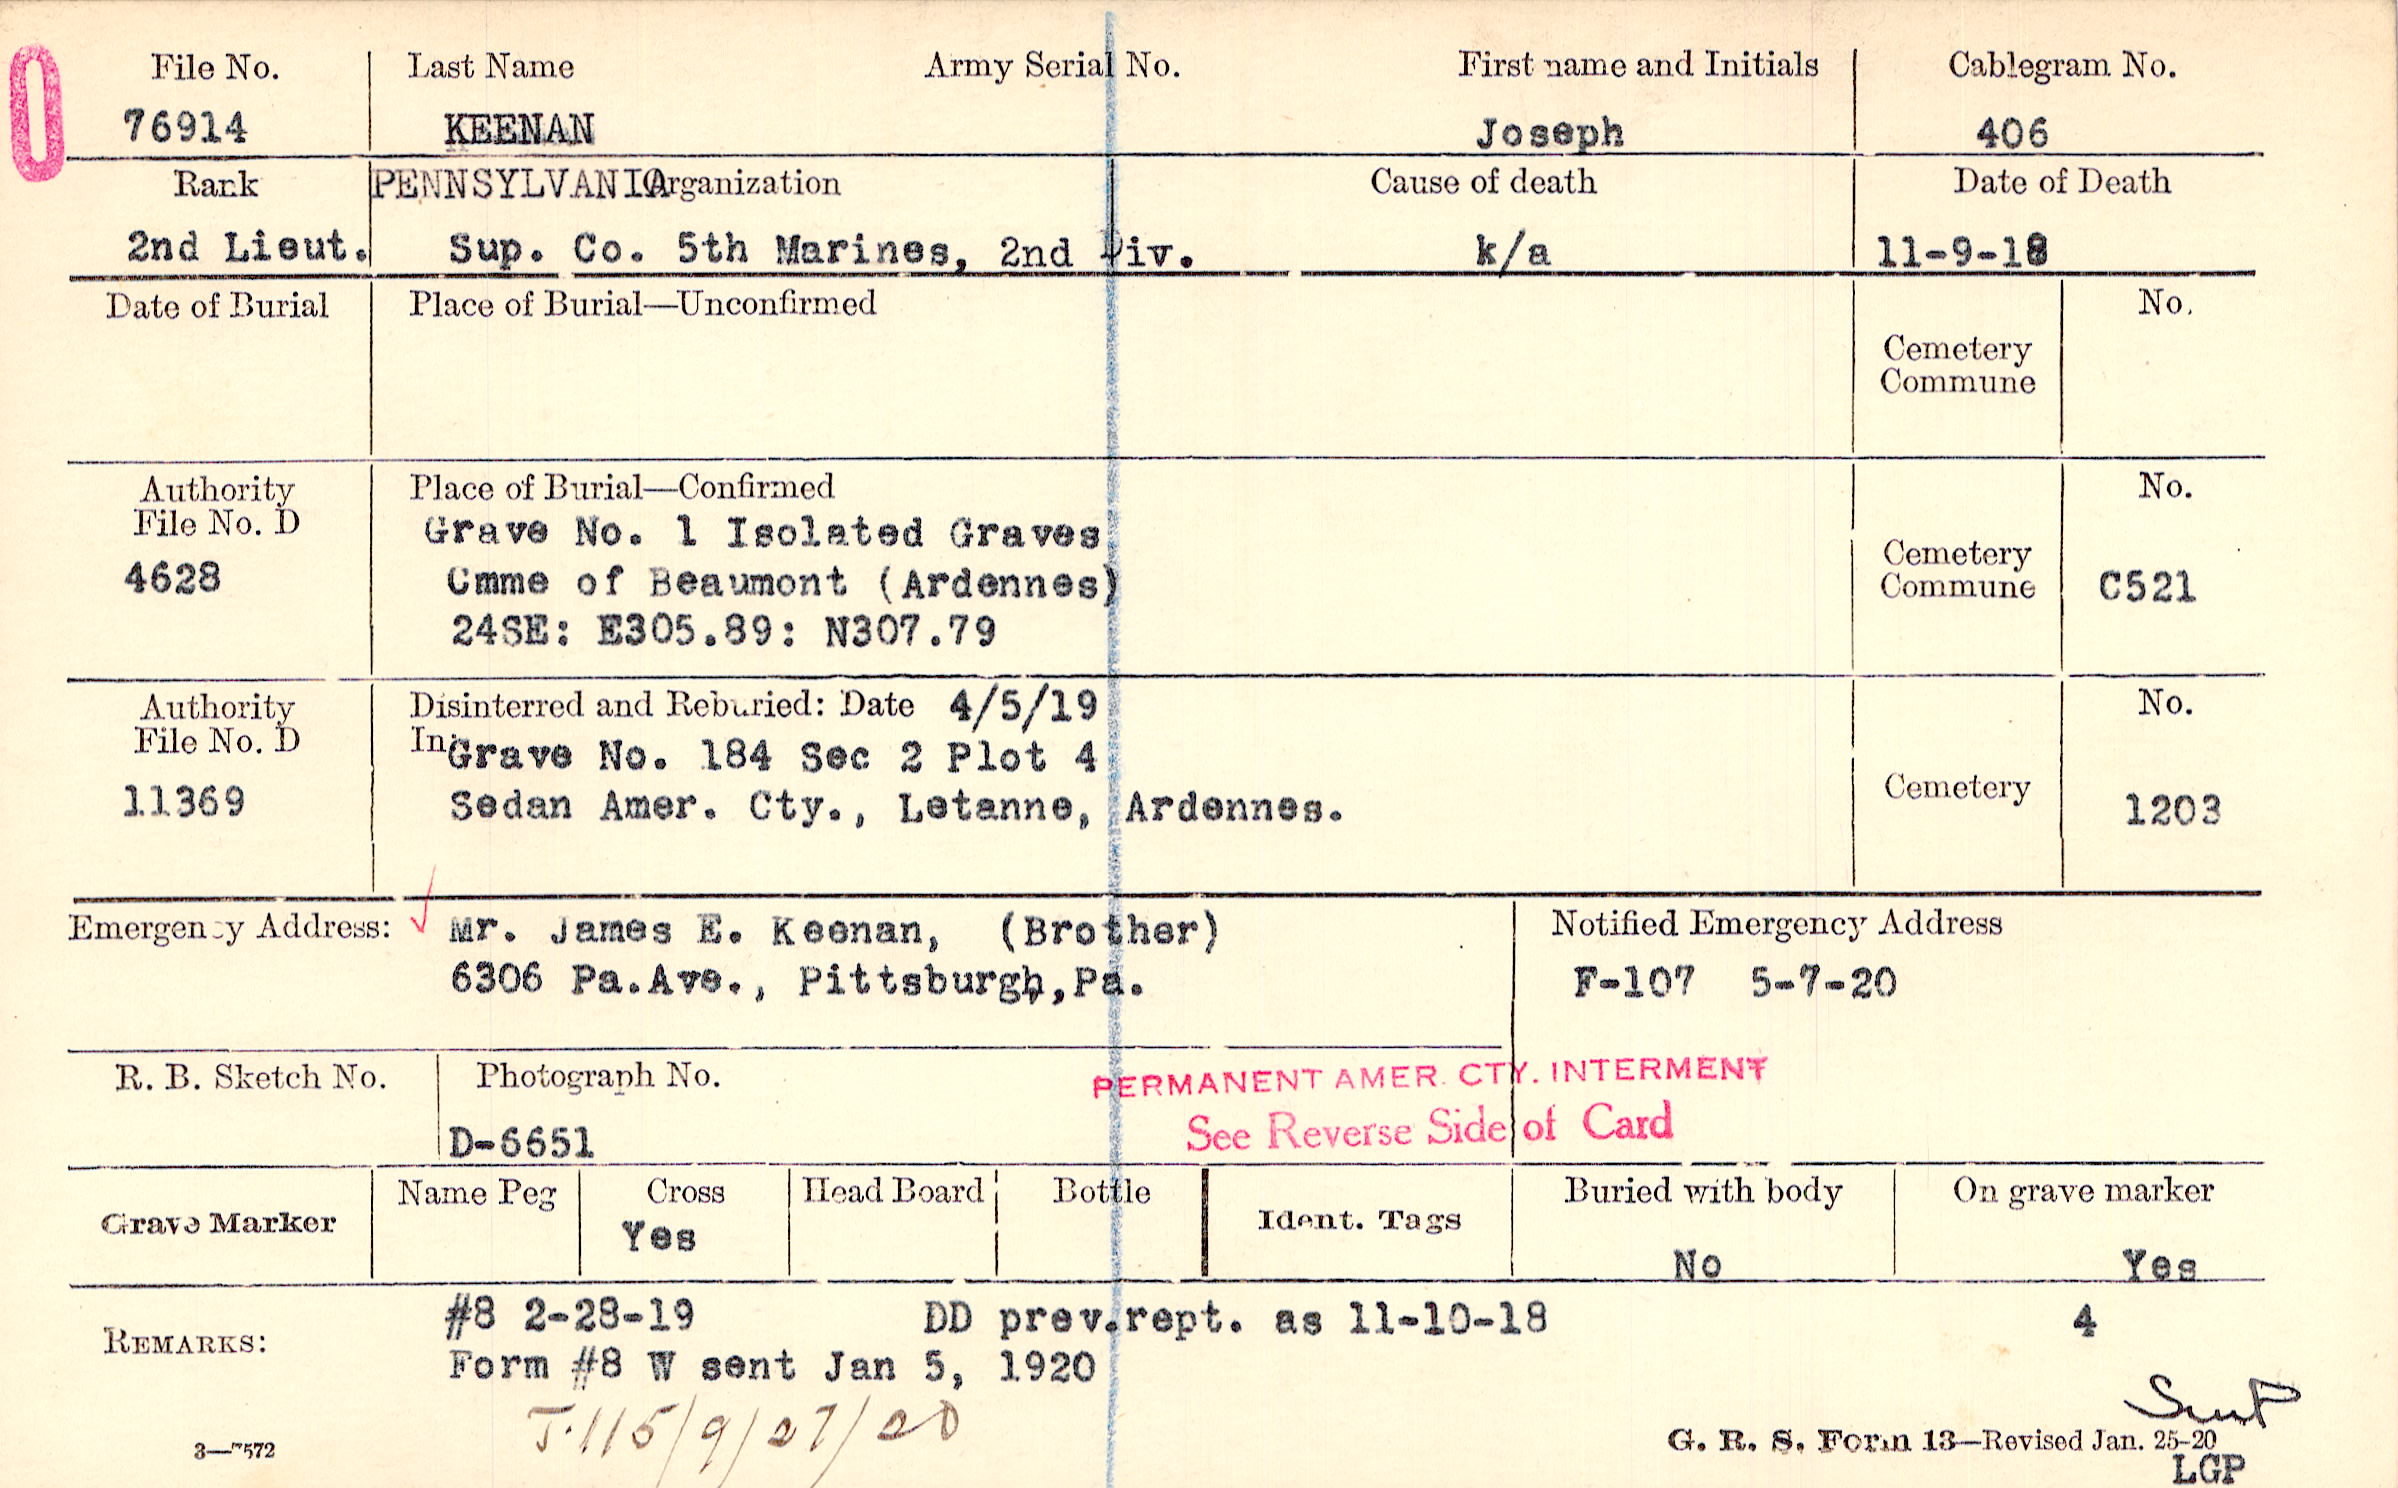 0
File No. Last Name Army Serial No. First name and Initials Cablegram No.
76914 KEENAN Joseph 406
Rank PENNSYLVANIA Organization Cause of death Date of Death
2nd Lieut. Sup. Co. 5th Marines, 2nd Div. k/a 11-9-18
Date of Burial Place of Burial—Unconfirmed No.
Cemetery
Commune
Authority Place of Burial—Confirmed No.
File No. D Grave No. 1 Isolated Graves
4628 Cmme of Beaumont (Ardennes) Cemetery
Commune C521
24SE: E305.89: N307.79
Authority Disinterred and Reburied: Date 4/5/19 No.
File No. D In: Grave No. 184 Sec 2 Plot 4
11369 Sedan Amer. Cty., Letanne, Ardennes. Cemetery 1203
Emergency Address: Mr. James E. Keenan, (Brother) Notified Emergency Address
6306 Pa.Ave., Pittsburgh,Pa. F-107 5-7-20
R. B. Sketch No. Photograph No. PERMANENT AMER. CTY. INTERMENT
D-6651 See Reverse Side of Card
Name Peg Cross Head Board Bottle Buried with body On grave marker
Grave Marker Yes Ident. Tags No Yes
#8 2-28-19 DD prev.rept. as 11-10-18 4
REMARKS: Form #8 W sent Jan 5, 1920
T.115/9/27/20
3—7572 G. R. S. Form 13—Revised Jan. 25-20
LGP